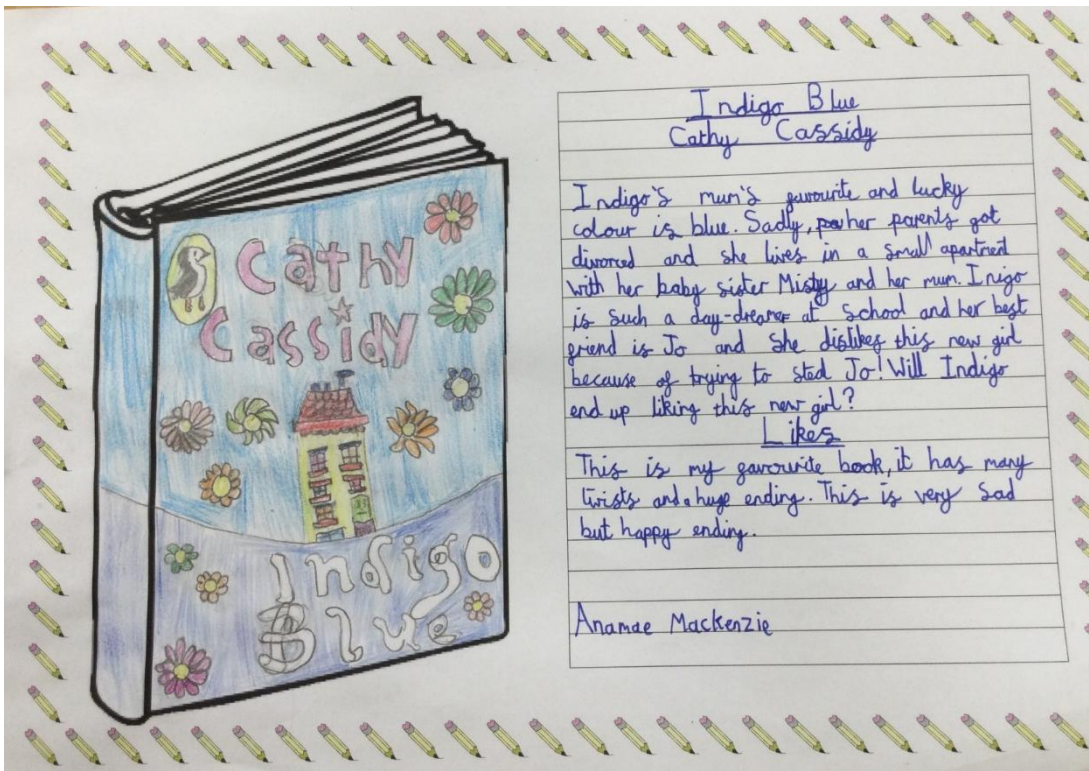 Cathy
Cassidy
Indigo
Blue
Indigo Blue
Cathy Cassidy
Indigo's mum's favourite and lucky
colour is blue. Sadly, her parents got
divorced and she lives in a small apartment
with her baby sister Misty and her mum. Inigo
is such a day-dreamer at school and her best
friend is Jo and she dislikes this new girl
because of trying to steal Jo! Will Indigo
end up liking this new girl?
Likes
This is my favourite book, it has many
twists and a huge ending. This is very sad
but happy ending.
Anamae Mackenzie